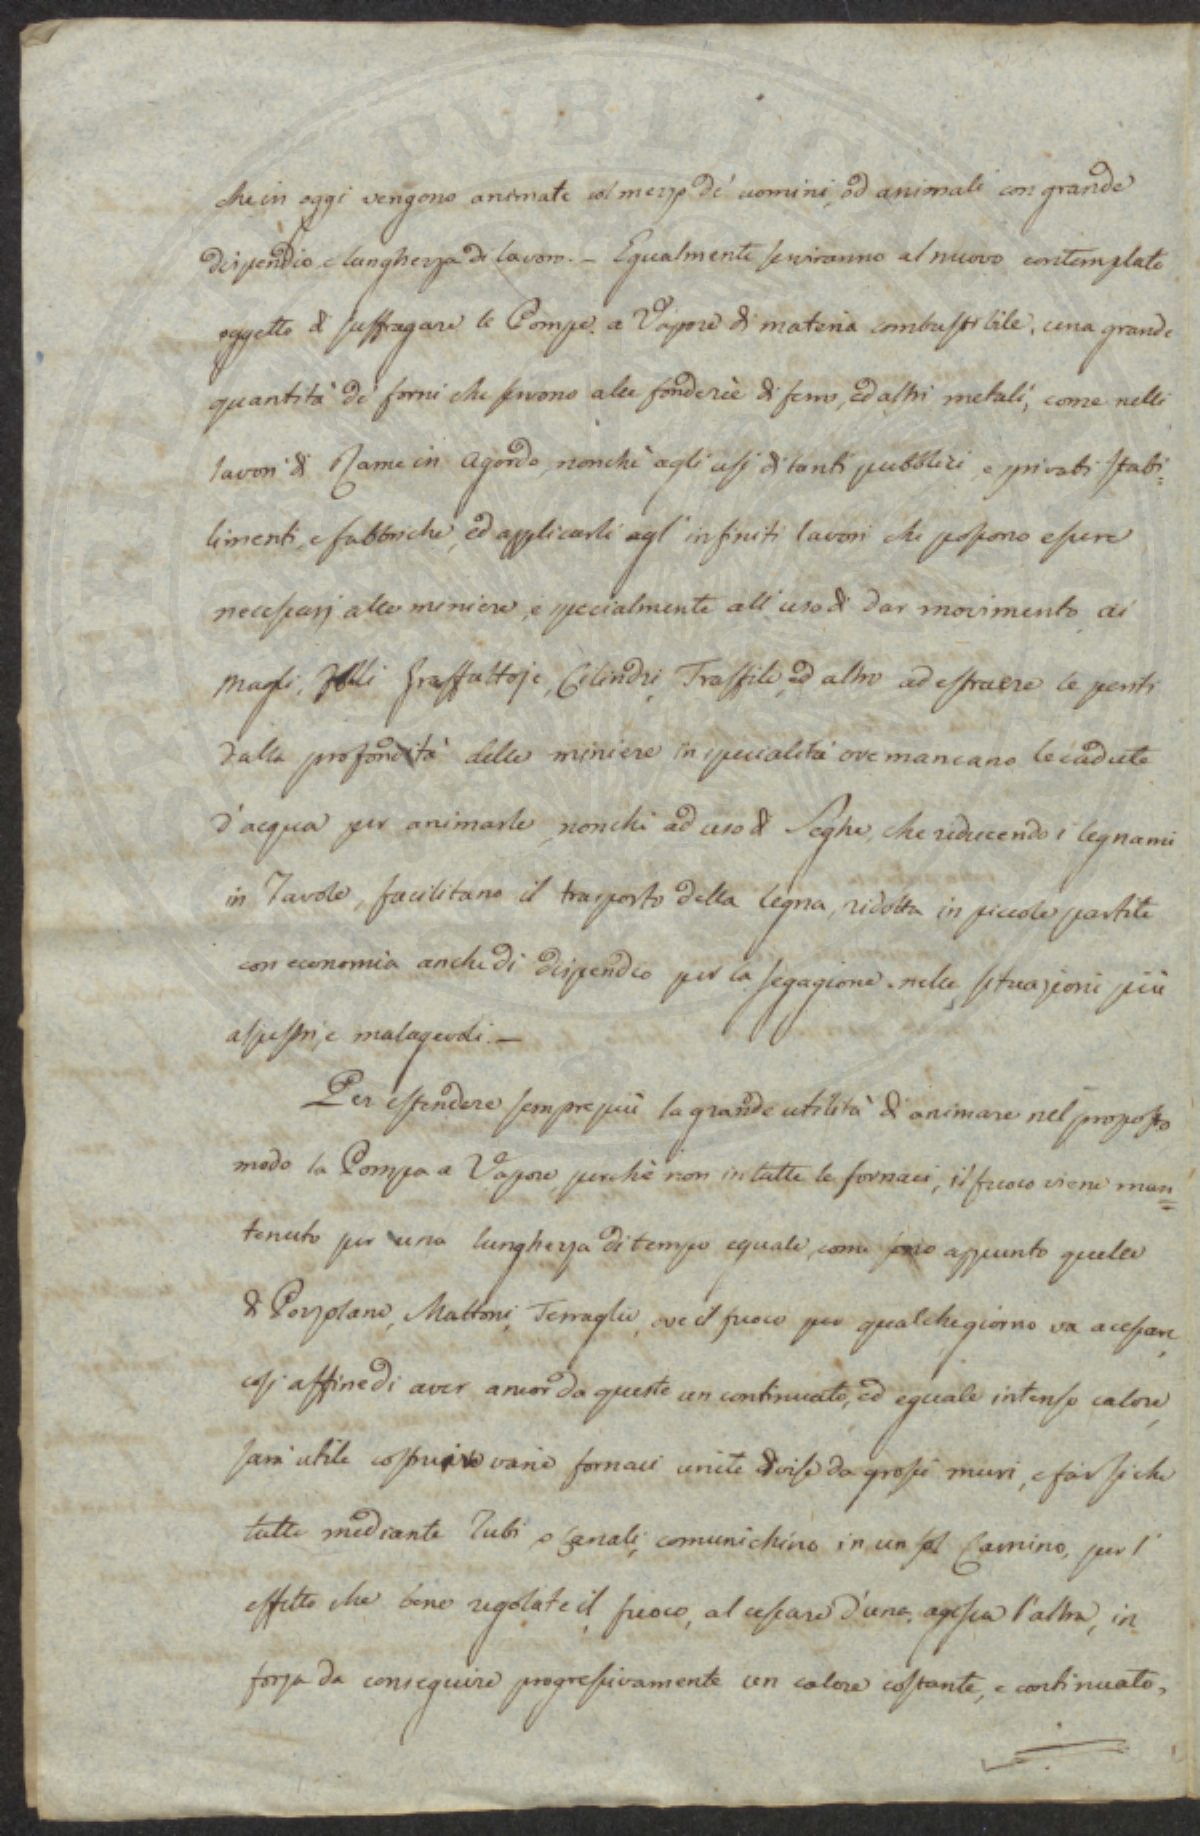 che in oggi vengono animate col mezzo de' uomini, od animali con grande
dispendio e lunghezza di lavoro. – Egualmente serviranno al nuovo contemplato
oggetto di suffragare le Pompe a Vapore di materia combustibile, una grande
quantità de' forni che servono alle fonderie di ferro, ed altri metali, come nelli
lavori di Rame in Agordo, nonchè agli usi di tanti pubblici, e privati stabi=
limenti, e fabbriche, ed applicarli agl' infiniti lavori che possono essere
necessarj alle miniere, e specialmente all' uso di dar movimento ai
Magli, Folli Graffattoje, Cilindri, Traffile, ed altro ad estraere le
dalla profondità delle miniere in specialità ove mancano le cadute
d'acqua per animarle, nonchè ad uso di Seghe, che riducendo i legnami
in Tavole, facilitano il trasporto della legna, ridotta in piccole partite
con economia anche di dispendio per la segagione nelle situazioni più
alpestri, e malagevoli. –
Per estendere sempre più la grande utilità di animare nel proposto
modo la Pompa a Vapore, perchè non in tutte le fornaci, il fuoco viene man=
tenuto per una lunghezza di tempo eguale, come sono appunto quelle
di Porzolane, Mattoni, Terraglie, ove il fuoco per qualche giorno va a cessare,
così affine di aver ancor da queste un continuato, ed eguale intenso calore,
sarà utile costruire varie fornaci unite divise da grossi muri, e far si che
tutte mediante Tubi, o Canali, comunichino in un sol Camino, per l'
effetto che bene regolate il fuoco, al cessare d'una, agisca l'altra, in
forza da conseguire progressivamente un calore costante, e continuato,